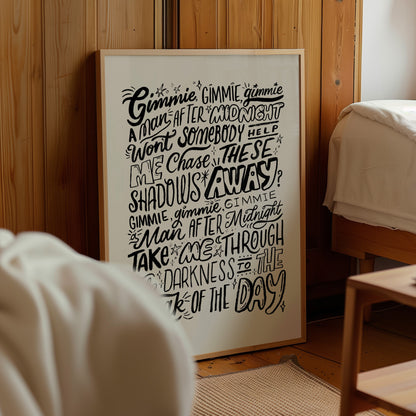 Gimmie, GIMMIE, gimmie
A Man AFTER MIDNIGHT
Wont SOMEBODY HELP
ME Chase THESE
SHADOWS AWAY?
GIMMIE, gimmie, GIMMIE
A Man AFTER Midnight
TAKE ME THROUGH
THE DARKNESS TO THE
OF THE DAY